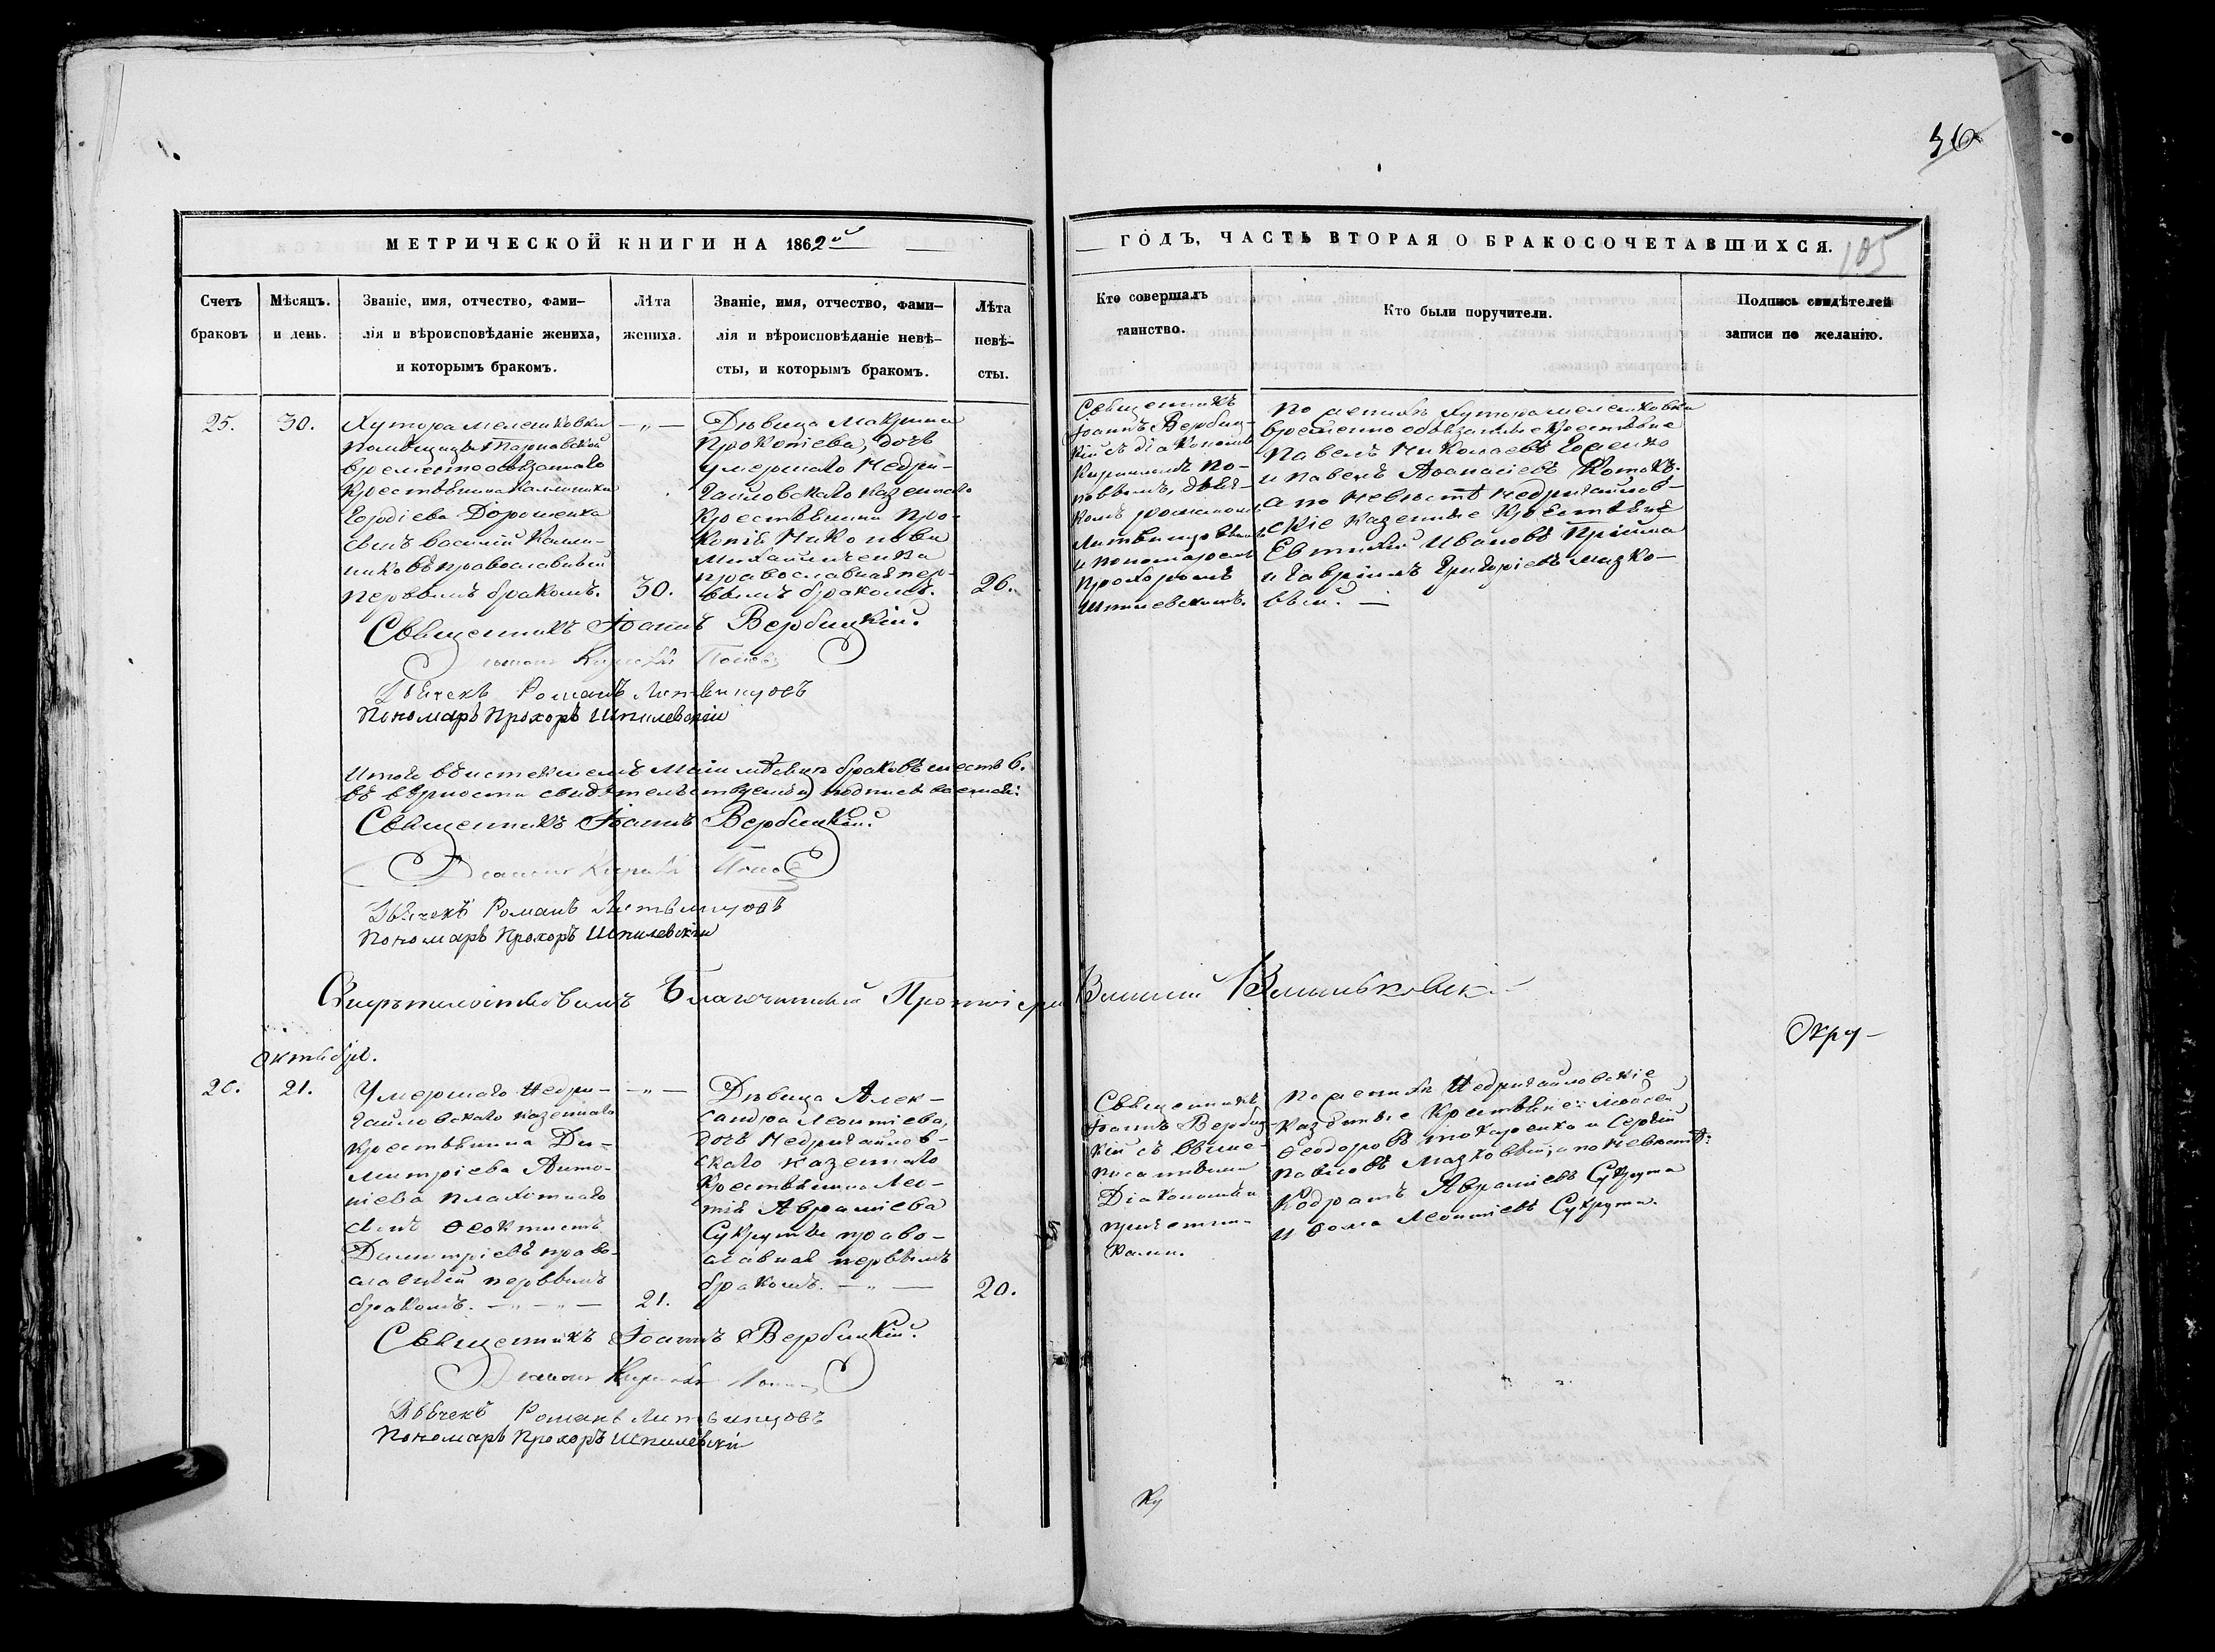 36
МЕТРИЧЕСКОЙ КНИГИ НА 1862й
ГОДЪ, ЧАСТЬ ВТОРАЯ О БРАКОСОЧЕТАВШИХСЯ.
105
Счетъ
браковъ
Мѣсяцъ.
и день.
Званіе, имя, отчество, фами-
лія и вѣроисповѣданіе жениха,
и которымъ бракомъ.
Лѣта
жениха.
Званіе, имя, отчество, фами-
лія и вѣроисповѣданіе невѣ-
сты, и которымъ бракомъ.
Лѣта
невѣ-
сты.
Кто совершалъ
таинство.
Кто были поручители.
Подпись свидѣтелей
записи по желанію.
25.
30.
Хутора
временнообязаннаго
крестьянина
Гордіева Дорошенка
сынъ Василій Калли-
никовъ православный
первымъ бракомъ.
30.
Дѣвица Макрина
Прокопіева, дочь
умершаго Недри-
гайловскаго казеннаго
крестьянина Про-
копія Никонова
Михайличенка
православная пер-
вымъ бракомъ.
26.
Священникъ
Іоаннъ Вербиц-
кій съ діакономъ
Кирилломъ По-
повымъ, дьяч-
комъ Романомъ
Литвинцовымъ
и пономаремъ
Прохоромъ
Шпилевскимъ.
По женихѣ Хутора
временно обязанные крестьяне
Павелъ Николаевъ
и Павелъ Аѳанасіевъ Котокъ.
а по невѣстѣ Недригайлов-
скіе казенные крестьяне
Евтихій Ивановъ Прійма
и Гавріилъ Григоріевъ Мазко-
вый. —
Священникъ Іоаннъ Вербицкій.
Діаконъ Кириллъ Поповъ
Дьячекъ Романъ Литвинцовъ
Пономарь Прохоръ Шпилевскій
Итого въ истекшемъ Маіи мѣсяцѣ браковъ шесть 6.
въ вѣрности свидѣтельствуемъ
Священникъ Іоаннъ Вербицкій.
Діаконъ Кириллъ Поповъ
Дьячекъ Романъ Литвинцовъ
Пономарь Прохоръ Шпилевскій
Благочинный Протоіерей
Октября.
Окру-
26.
21.
Умершаго Недри-
гайловскаго казеннаго
крестьянина Ди-
митріева Анто-
ніева
сынъ Ѳеоктистъ
Димитріевъ право-
славный первымъ
бракомъ.
21.
Дѣвица Алек-
сандра Леонтіева,
дочь Недригайлов-
скаго казеннаго
крестьянина Лео-
нтія Авраміева
Сукруты право-
славная первымъ
бракомъ.
20.
Священникъ
Іоаннъ Вербиц-
кій съ выше-
писанными
Діакономъ и
причетни-
ками.
По женихѣ Недригайловскіе
казенные крестьяне: Моѵсей
Ѳеодоровъ Токаренко и Сергій
Павловъ Мазковый, а по невѣстѣ:
Кодратъ Авраміевъ Сукрута
и Ѳома Леонтіевъ Сукрута.
Священникъ Іоаннъ Вербицкій.
Діаконъ Кириллъ Поповъ
Дьячекъ Романъ Литвинцовъ
Пономарь Прохоръ Шпилевскій